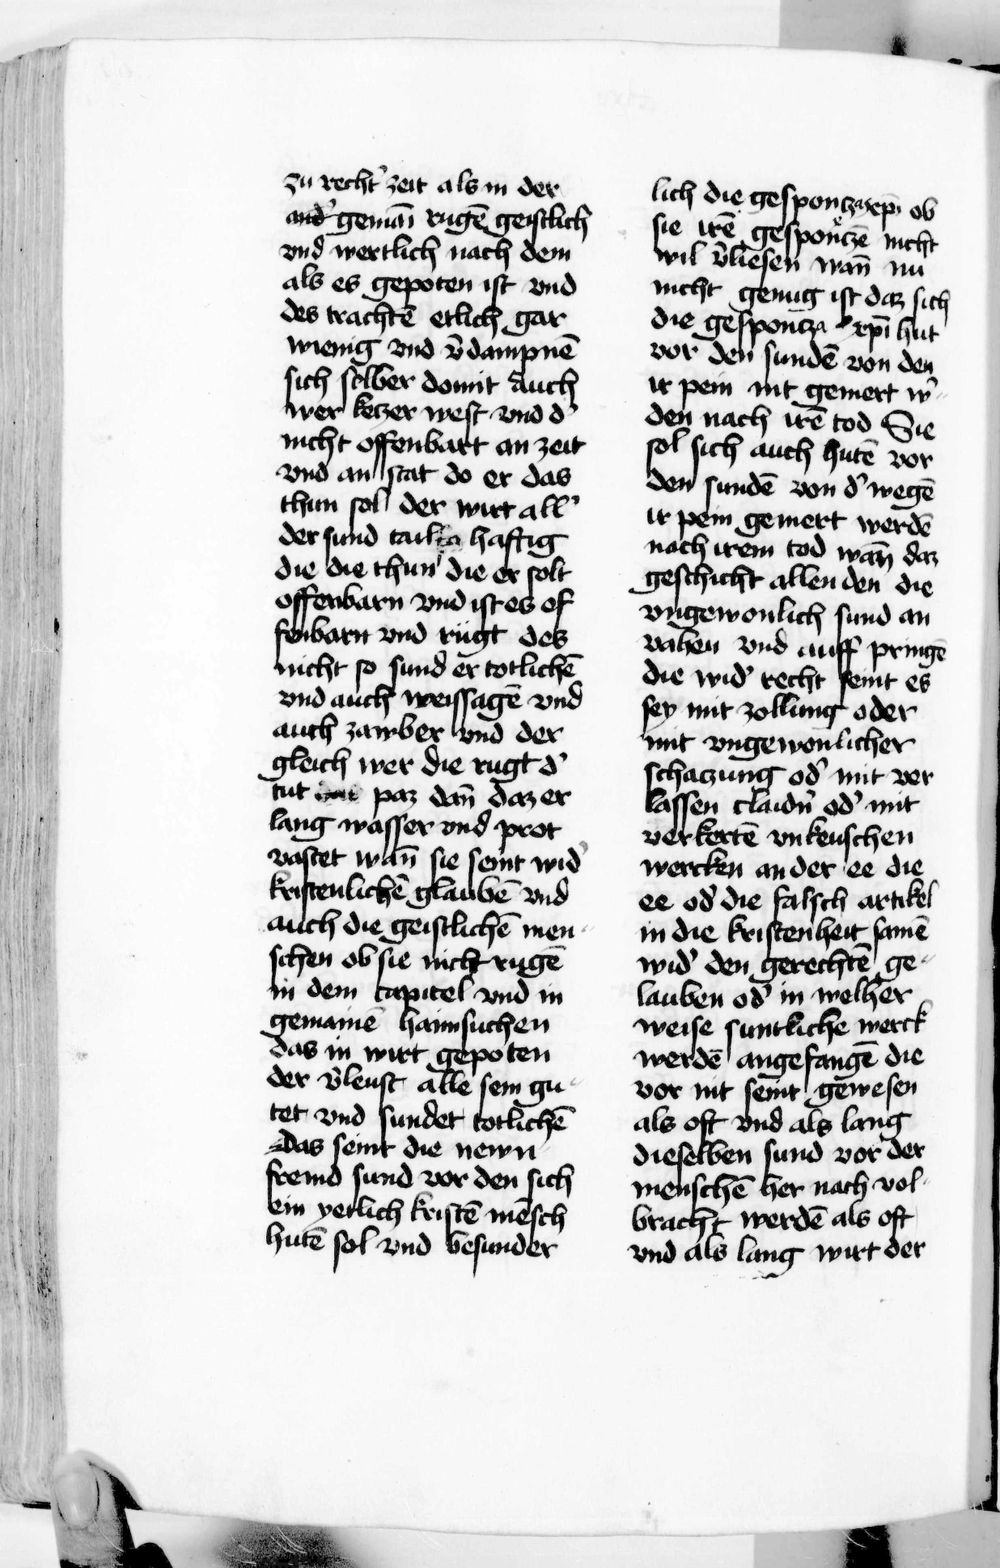 zu recht' zeit als in der
and' gemaī rugē geistlich
vnd wertlich nach dem
als es gepoten ist vnd
des trachtē etlich gar
wenig vnd v̄dampnē
sich selber domit Auch
wer ketzer west vnd d'
nicht offenbart an zeit
vnd an stat do er das
thun sol der wirt all'
der sund tail haftig
die die thun die er solt
offenbarn vnd ist es of
fenbarn vnd rügt des
nicht so sund er totlichē
vnd auch weissagē vnd
auch zawber vnd der
gleich wer die rugt d'
tut paz dan̄ daz er
lang wasser vnd prot
vastet wan̄ sie seint wid'
kristenlichē glaubē vnd
auch die geistlichē men-
schen ob sie nicht rugē
in dem capitel vnd in
gemainē haimsuchen
das in wirt gepoten
der v̄leust alle sein gu-
tet vnd sundet totlichē
Das seint die newn
fremd sund vor den sich
ein yerlich kristē mēsch
hutē sol vnd besunder
lich die gespontza xp̄i ob
sie irē gespontzē nicht
wil v̄liesen wan̄ nu
nicht genug ist daz sich
die gespontza xp̄i hut
vor den sundē von den
ir pein nit gemert w'-
den nach irē tod Sie
sol sich auch hutē vor
den sundē von d' wegē
ir pein gemert werdē
nach irem tod wan̄ daz
geschicht allen den die
vngewonlich sund an
vahen vnd auff pringē
die wid' recht seint es
sey mit zollung oder
mit vngewonlicher
schatzung od' mit ver
lassen claidn̄ od' mit
verkertē vnkeuschen
wercken an der ee die
ee od' die falsch artikel
in die kristenheit samē
wid' den gerechtē ge-
lauben od' in welher
weise suntliche werck
werdē angefangē die
vor nit seint gewesen
als oft vnd als lang
dieselben sund vor der
menschē her nach vol-
bracht werdē als oft
vnd als lang wirt der